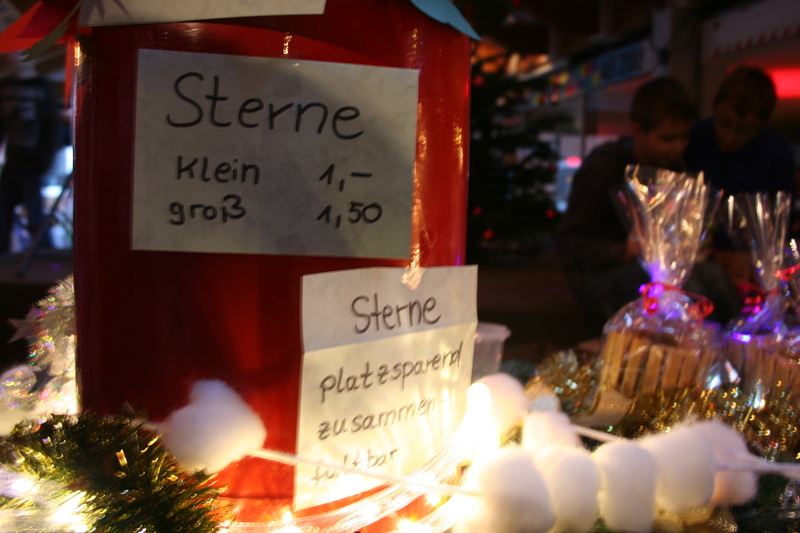 Sterne
klein 1,-
groß 1,50
Sterne
platzsparend
zusammen-
faltbar